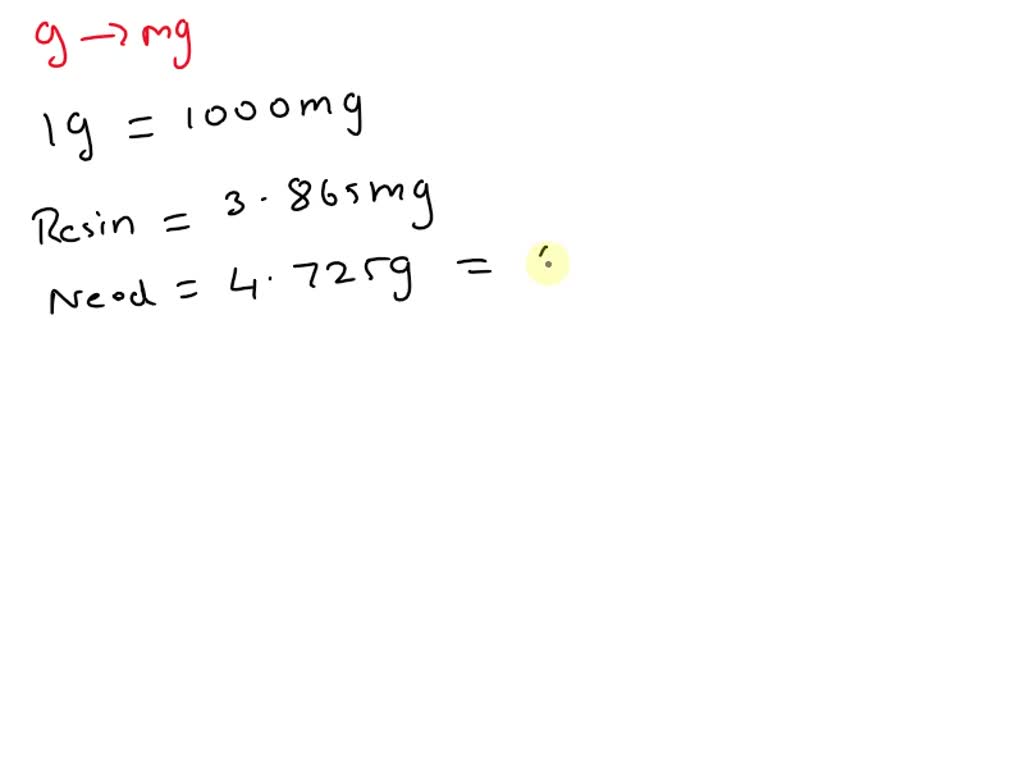 g → mg
1g = 1000mg
Resin = 3.865mg
Neod = 4.725g =